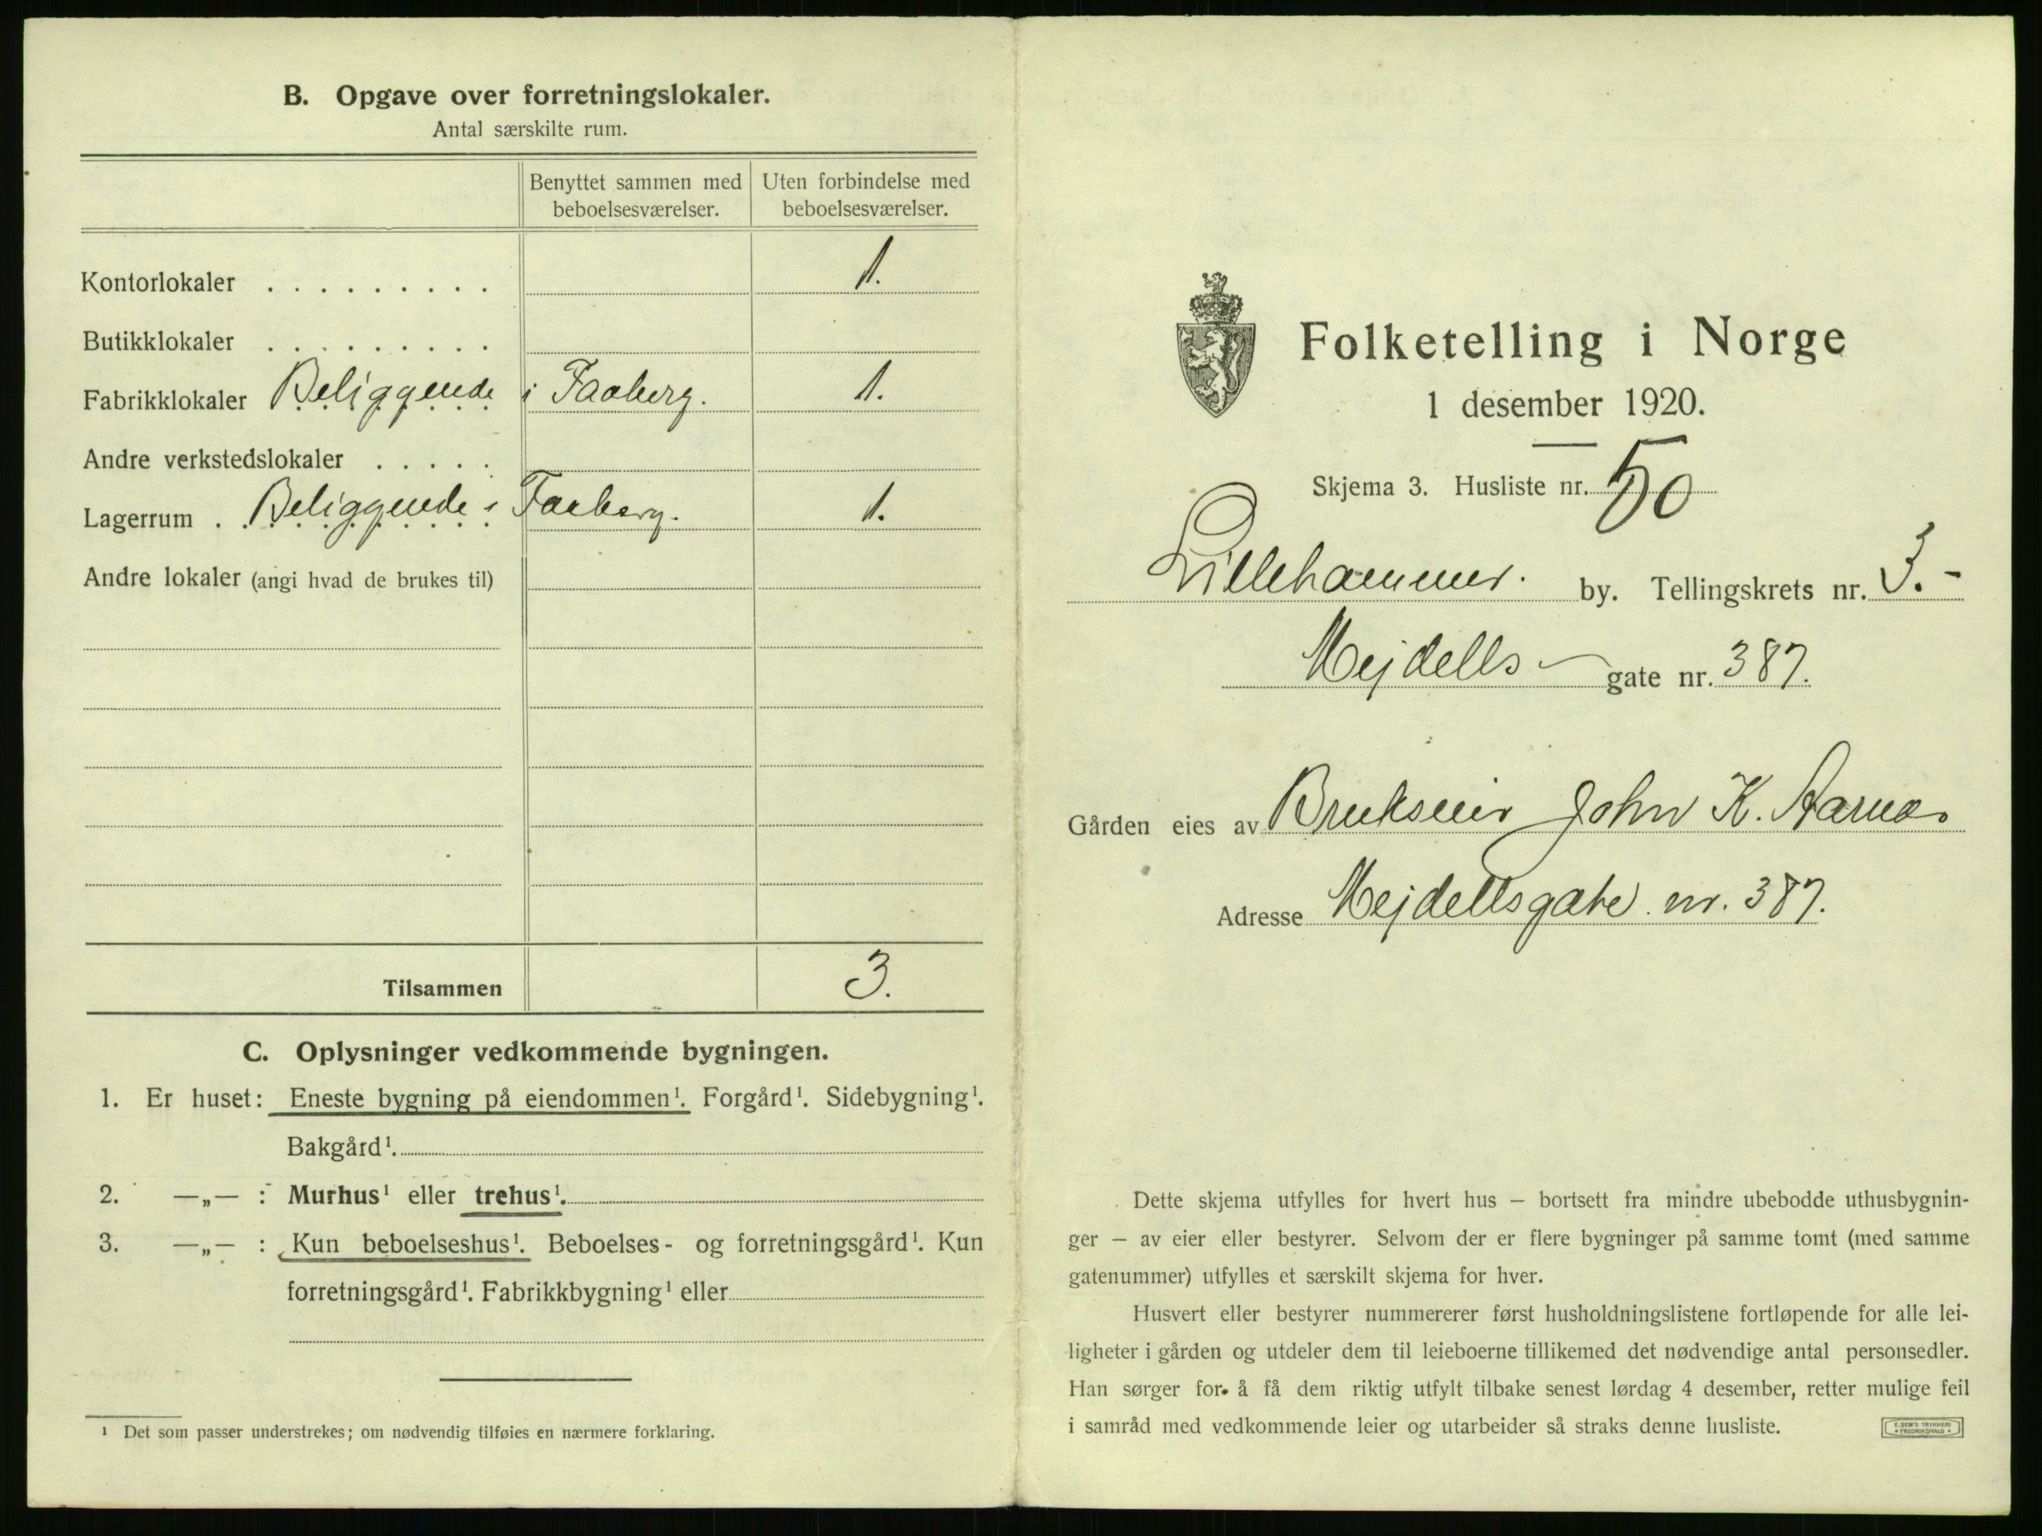 B. Opgave over forretningslokaler.
Antal særskilte rum.
Benyttet sammen med beboelsesværelser.
Uten forbindelse med beboelsesværelser.
Kontorlokaler . . . . . . . . . 1.
Butikklokaler . . . . . . . . .
Fabrikklokaler Beliggende i Faaberg. 1.
Andre verkstedslokaler . . . . .
Lagerrum . . Beliggende i Faaberg. 1.
Andre lokaler (angi hvad de brukes til)
Tilsammen 3.
C. Oplysninger vedkommende bygningen.
1. Er huset: Eneste bygning på eiendommen¹. Forgård¹. Sidebygning¹.
Bakgård¹.
2. —„— : Murhus¹ eller trehus¹.
3. —„— : Kun beboelseshus¹. Beboelses- og forretningsgård¹. Kun
forretningsgård¹. Fabrikkbygning¹ eller
¹ Det som passer understrekes; om nødvendig tilføies en nærmere forklaring.
Folketelling i Norge
1 desember 1920.
Skjema 3. Husliste nr. 50
Lillehammer. by. Tellingskrets nr. 3.-
Mejdells gate nr. 387.
Gården eies av Brukseier John K. Aarnæs
Adresse Mejdellsgate nr. 387.
Dette skjema utfylles for hvert hus – bortsett fra mindre ubebodde uthusbygnin-
ger – av eier eller bestyrer. Selvom der er flere bygninger på samme tomt (med samme
gatenummer) utfylles et særskilt skjema for hver.
Husvert eller bestyrer nummererer først husholdningslistene fortløpende for alle lei-
ligheter i gården og utdeler dem til leieboerne tillikemed det nødvendige antal personsedler.
Han sørger for å få dem riktig utfylt tilbake senest lørdag 4 desember, retter mulige feil
i samråd med vedkommende leier og utarbeider så straks denne husliste.
E. SEM'S TRYKKERI
• FREDRIKSHALD •